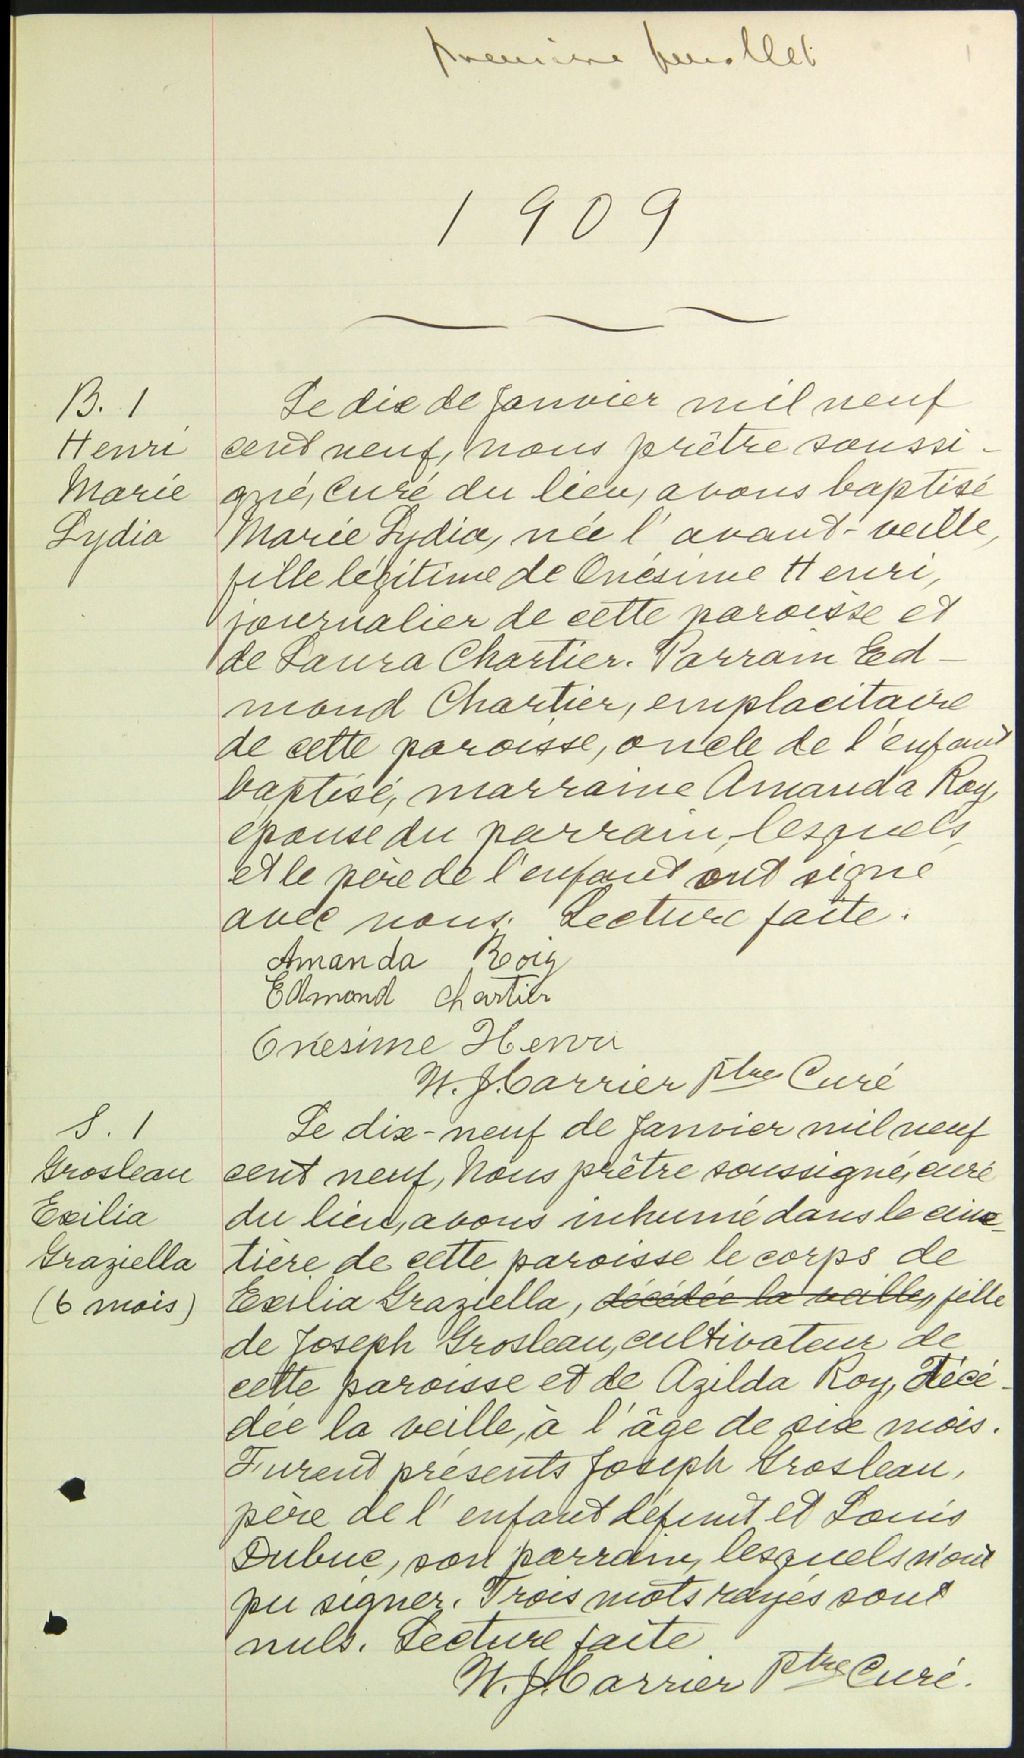 premier feuillet
1
1909
B. 1
Henri
Marie
Lydia
Le dix de Janvier mil neuf
cent neuf, nous prêtre soussi-
gné, curé du lieu, avons baptisé
Marie Lydia, née l'avant-veille,
fille légitime de Onésime Henri,
journalier de cette paroisse et
de Laura Chartier. Parrain Ed-
mond Chartier, emplacitaire
de cette paroisse, oncle de l'enfant
baptisé, marraine Amanda Roy,
épouse du parrain, lesquels,
et le père de l'enfant ont signé
avec nous. Lecture faite.
Amanda Roiy
Edmond Chartier
Onesime Henri
W. J. Carrier Ptre Curé
S. 1
Grosleau
Exilia
Graziella
(6 mois)
Le dix-neuf de Janvier mil neuf
cent neuf, Nous prêtre soussigné, curé
du lieu, avons inhumé dans le cime-
tière de cette paroisse le corps de
Exilia Graziella, décédée la veille, fille
de Joseph Grosleau, cultivateur de
cette paroisse et de Azilda Roy, Décé-
dée la veille, à l'âge de six mois.
Furent présents Joseph Grosleau,
père de l'enfant défunt et Louis
Dubuc, son parrain, lesquels n'ont
pu signer. Trois mots rayés sont
nuls. Lecture faite
W. J. Carrier Ptre Curé.